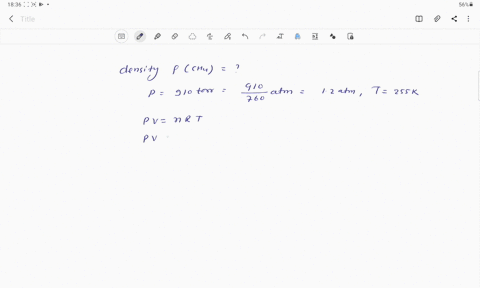 18:36 56%
Title
density ρ (CH4) = ?
P = 910 torr = 910/760 atm = 1.2 atm, T = 255 K
PV = nRT
PV